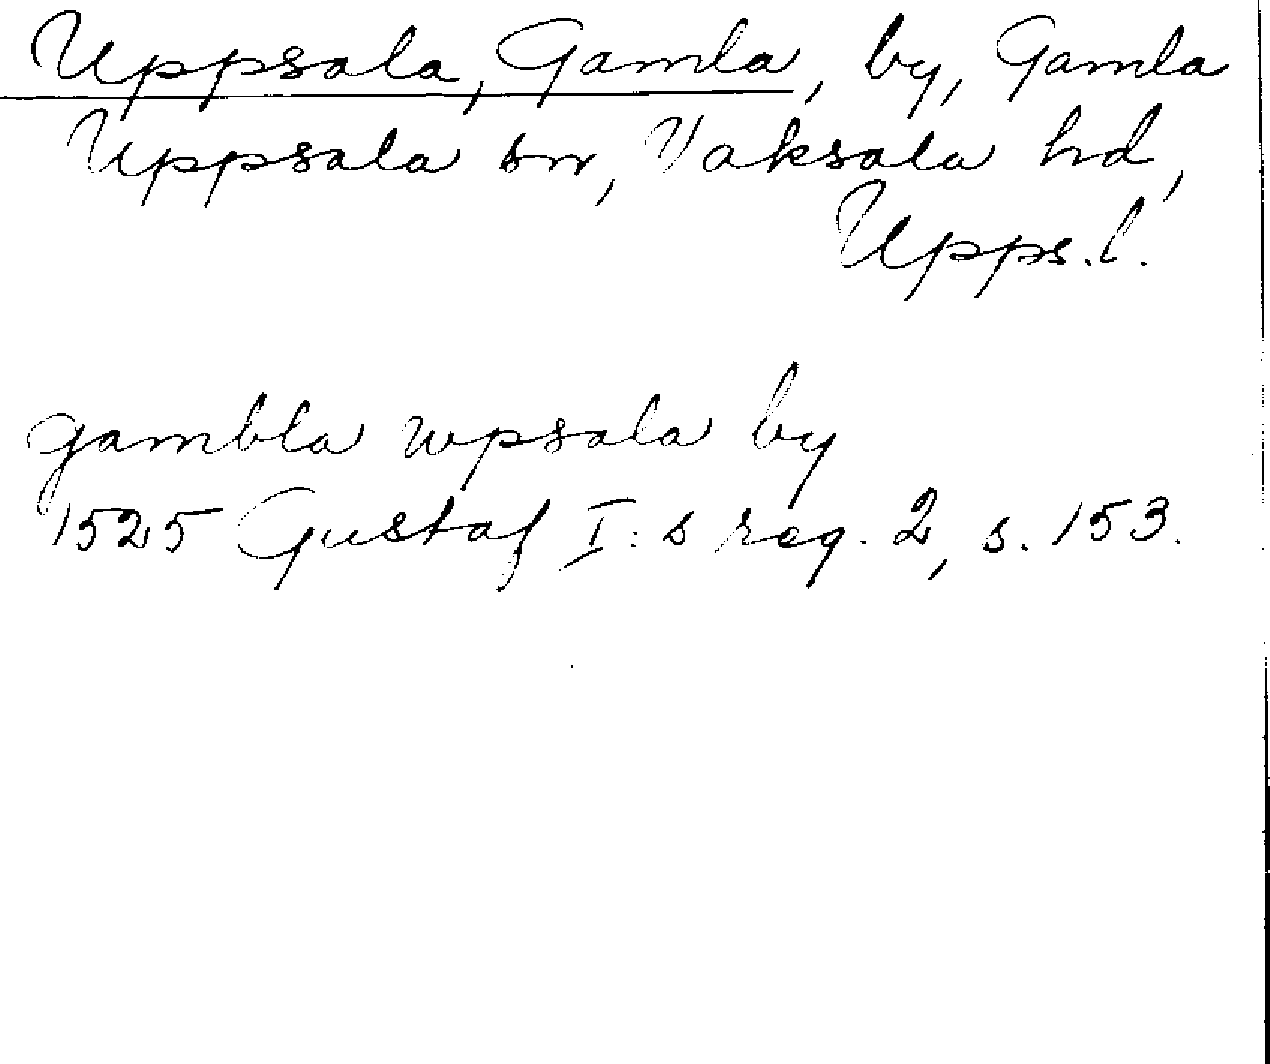 Uppsala, Gamla, by, Gamla
Uppsala sn, Vaksala hd,
Upps.l.
gambla wpsala by
1525 Gustaf I:s reg. 2, s. 153.